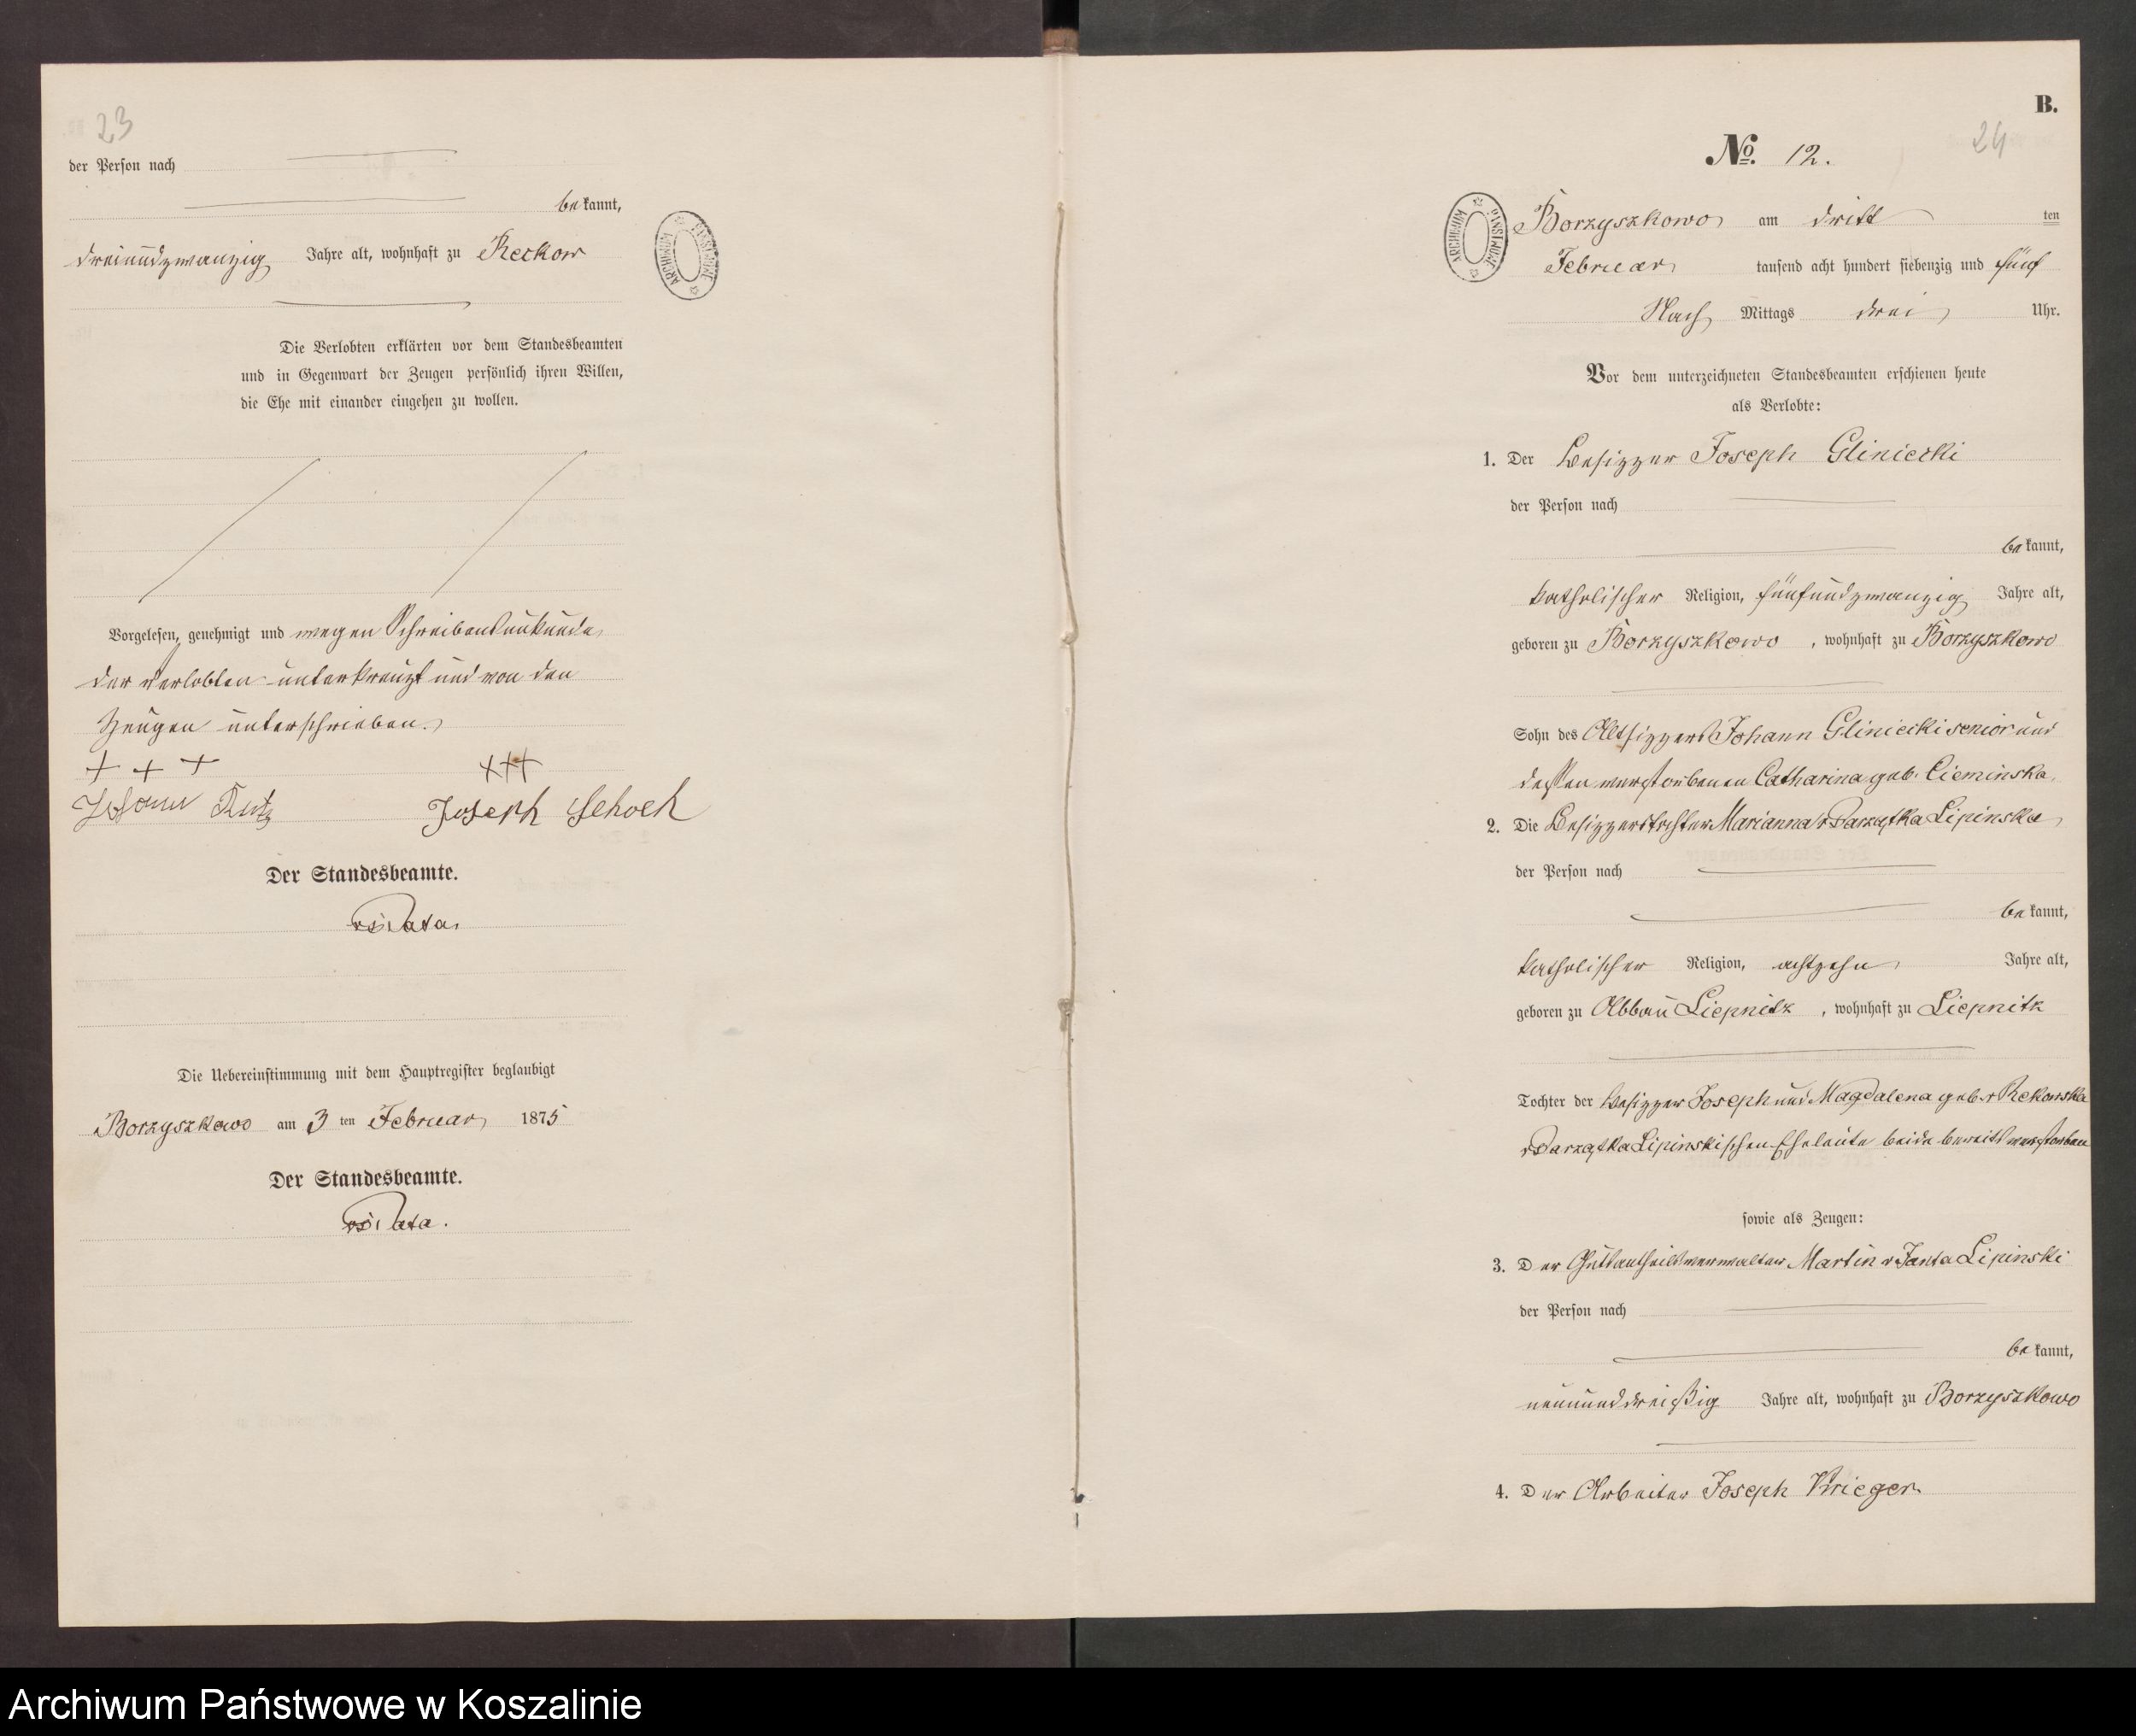 23
der Person nach
bekannt,
dreiundzwanzig Jahre alt, wohnhaft zu Reckow
ARCHIWUM PAŃSTWOWE
Die Verlobten erklärten vor dem Standesbeamten
und in Gegenwart der Zeugen persönlich ihren Willen,
die Ehe mit einander eingehen zu wollen.
Vorgelesen, genehmigt und wegen Schreibensunkunde
der Verlobten unterkreuzt und von den
Zeugen unterschrieben.
+ + + +++
Johann Joseph Schoeh
Der Standesbeamte.
Die Uebereinstimmung mit dem Hauptregister beglaubigt
Borzyszkowo am 3 ten Februar 1875
Der Standesbeamte.
B.
24
No. 12.
ARCHIWUM PAŃSTWOWE
Borzyszkowo am dritt ten
Februar tausend acht hundert siebenzig und fünf
Nach Mittags drei Uhr.
Vor dem unterzeichneten Standesbeamten erschienen heute
als Verlobte:
1. Der Besizzer Joseph Gliniecki
der Person nach
bekannt,
katholischer Religion, fünfundzwanzig Jahre alt,
geboren zu Borzyszkowo , wohnhaft zu Borzyszkowo
Sohn des Altsizzers Johann Gliniecki senior und
dessen verstorbenen Catharina geb. Cieminska.
2. Die Besizzerstochter Marianna v Darzatka Lipinska
der Person nach
bekannt,
katholischer Religion, achtzehn Jahre alt,
geboren zu Abbau Liepnitz , wohnhaft zu Liepnitz
Tochter der Besizzer Joseph und Magdalena geb. v Rekowska
v Darzatka Lipinskischen Eheleute beide bereits verstorben
sowie als Zeugen:
3. Der Gutsantheilsverwalter Martin v Janta Lipinski
der Person nach
bekannt,
neununddreißig Jahre alt, wohnhaft zu Borzyszkowo
4. Der Arbeiter Joseph Krieger
Archiwum Państwowe w Koszalinie